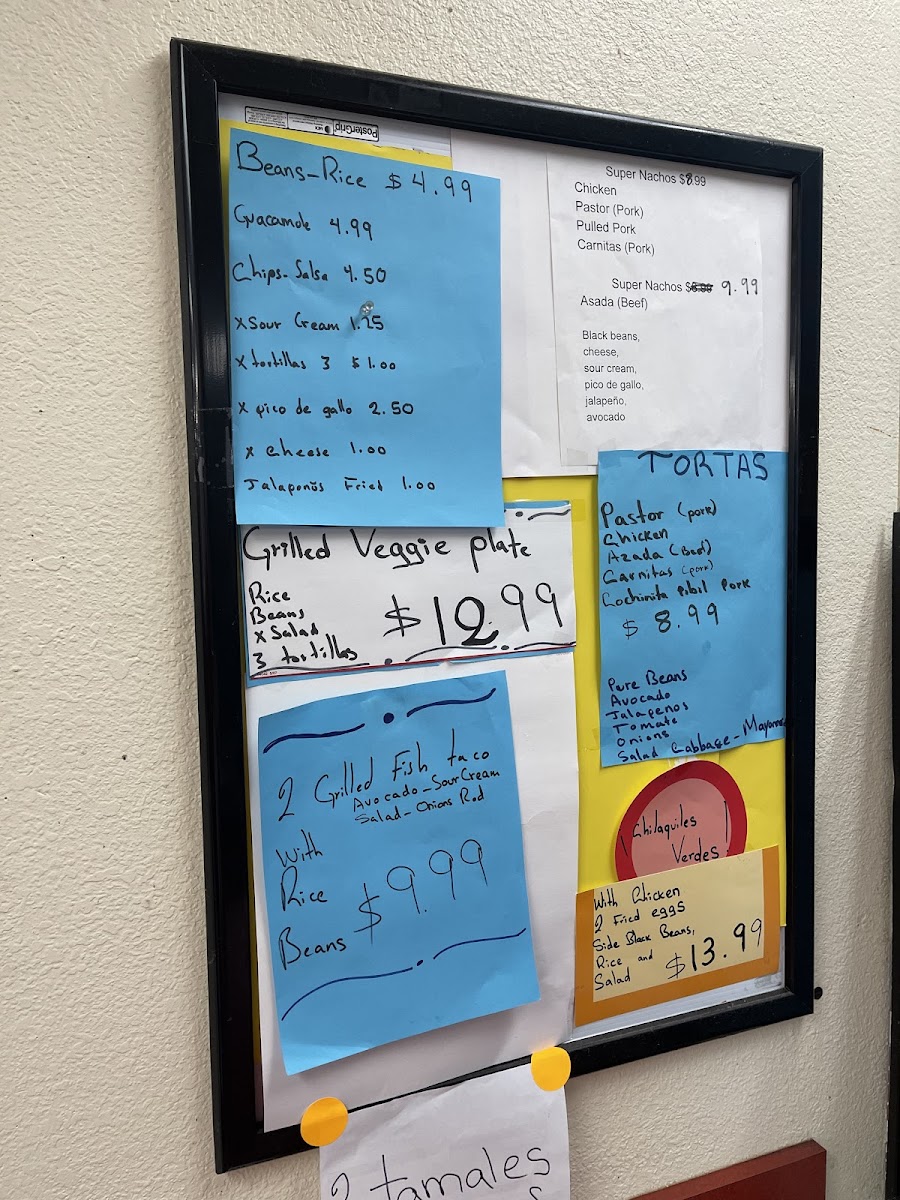 PosterGrip
Beans-Rice $4.99
Guacamole 4.99
Chips-Salsa 4.50
x Sour Cream 1.25
x tortillas 3 $1.00
x pico de gallo 2.50
x cheese 1.00
Jalapenõs Fried 1.00
Super Nachos $8.99
Chicken
Pastor (Pork)
Pulled Pork
Carnitas (Pork)
Super Nachos $8.99 9.99
Asada (Beef)
Black beans,
cheese,
sour cream,
pico de gallo,
jalapeño,
avocado
Grilled Veggie plate
Rice
Beans
x Salad
3 tortillas
$12.99
TORTAS
Pastor (pork)
Chicken
Azada (Beef)
Carnitas (pork)
Cochinita Pibil Pork
$ 8.99
Pure Beans
Avocado
Jalapenos
Tomate
Onions
Salad Cabbage-
2 Grilled Fish taco
Avocado-Sour Cream
Salad-Onions Red
With
Rice
Beans
$9.99
Chilaquiles
Verdes
With Chicken
2 Fried eggs
Side Black Beans,
Rice and
Salad
$13.99
2 tamales